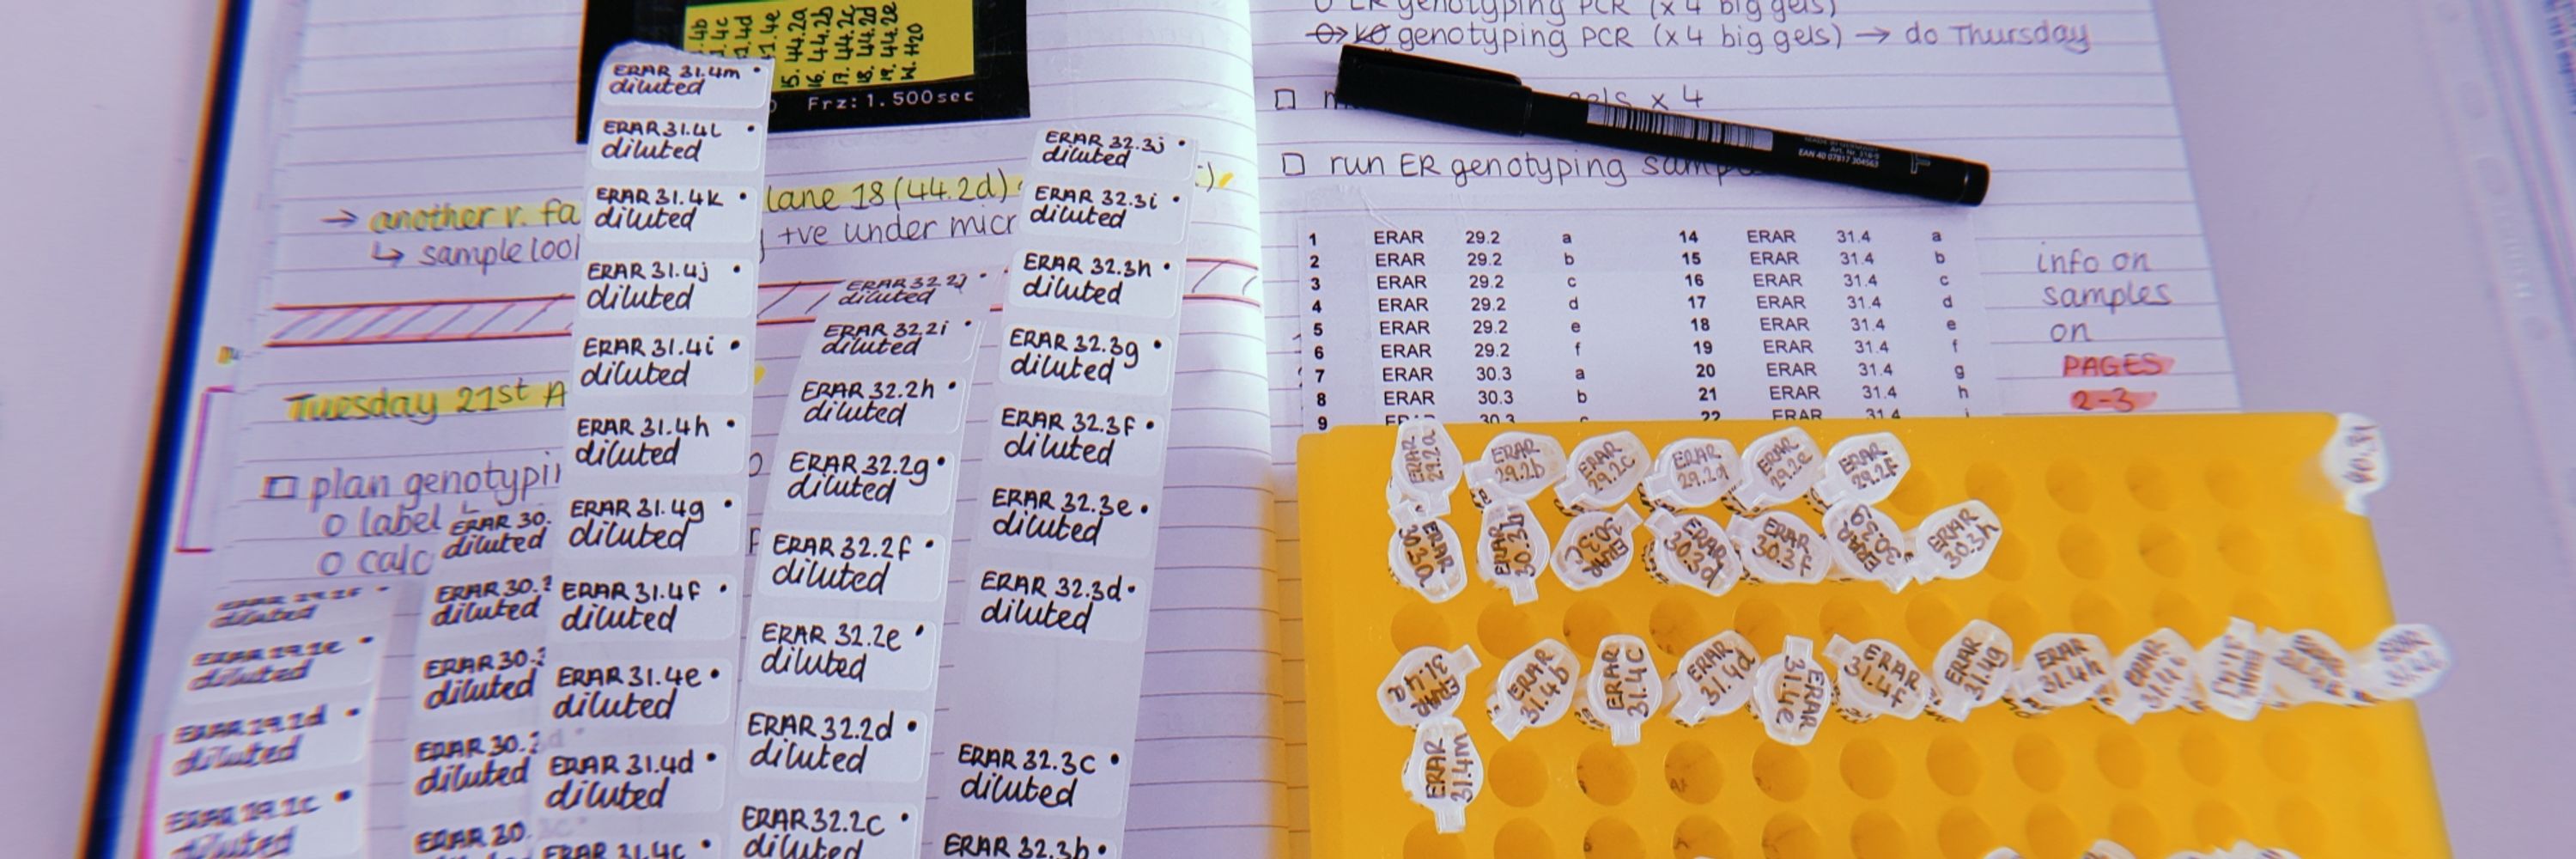 .4b
.4c
.4d
.4e
15. 44.2a
16. 44.2b
17. 44.2c
18. 44.2d
19. 44.2e
W. H20
Frz: 1.500sec
→ another v. fa
lane 18 (44.2d)
↳ sample lool
+ve under micr
Tuesday 21st A
plan genotypii
o label
o calc
diluted
diluted
ERAR 29.2d
diluted
ERAR 29.2c
diluted
ERAR 30.
diluted
ERAR 30.
diluted
ERAR 30.
diluted
ERAR 30.
diluted
ERAR 30.
ERAR 31.4m
diluted
ERAR 31.4l
diluted
ERAR 31.4k
diluted
ERAR 31.4j
diluted
ERAR 31.4i
diluted
ERAR 31.4h
diluted
ERAR 31.4g
diluted
ERAR 31.4f
diluted
ERAR 31.4e
diluted
ERAR 31.4d
diluted
ERAR 31.4c
ERAR 32.2j
diluted
ERAR 32.2i
diluted
ERAR 32.2h
diluted
ERAR 32.2g
diluted
ERAR 32.2f
diluted
ERAR 32.2e
diluted
ERAR 32.2d
diluted
ERAR 32.2c
diluted
ERAR 32.3j
diluted
ERAR 32.3i
diluted
ERAR 32.3h
diluted
ERAR 32.3g
diluted
ERAR 32.3f
diluted
ERAR 32.3e
diluted
ERAR 32.3d
diluted
ERAR 32.3c
diluted
ERAR 32.3b
o ER genotyping PCR (x 4 big gels)
KO genotyping PCR (x 4 big gels) → do Thursday
gels x 4
run ER genotyping samp
EAN 40 07817 304563
F
1 ERAR 29.2 a 14 ERAR 31.4 a
2 ERAR 29.2 b 15 ERAR 31.4 b
3 ERAR 29.2 c 16 ERAR 31.4 c
4 ERAR 29.2 d 17 ERAR 31.4 d
5 ERAR 29.2 e 18 ERAR 31.4 e
6 ERAR 29.2 f 19 ERAR 31.4 f
7 ERAR 30.3 a 20 ERAR 31.4 g
8 ERAR 30.3 b 21 ERAR 31.4 h
9 ERAR 30.3 c 22 ERAR 31.4 i
info on
samples
on
PAGES
2-3
ERAR 29.2a
ERAR 29.2b
ERAR 29.2c
ERAR 29.2d
ERAR 29.2e
ERAR 29.2f
ERAR 30.3a
ERAR 30.3b
ERAR 30.3c
ERAR 30.3d
ERAR 30.3f
ERAR 30.3g
ERAR 30.3h
ERAR 31.4a
ERAR 31.4b
ERAR 31.4c
ERAR 31.4d
ERAR 31.4e
ERAR 31.4f
ERAR 31.4g
ERAR 31.4h
ERAR 31.4i
ERAR 31.4m